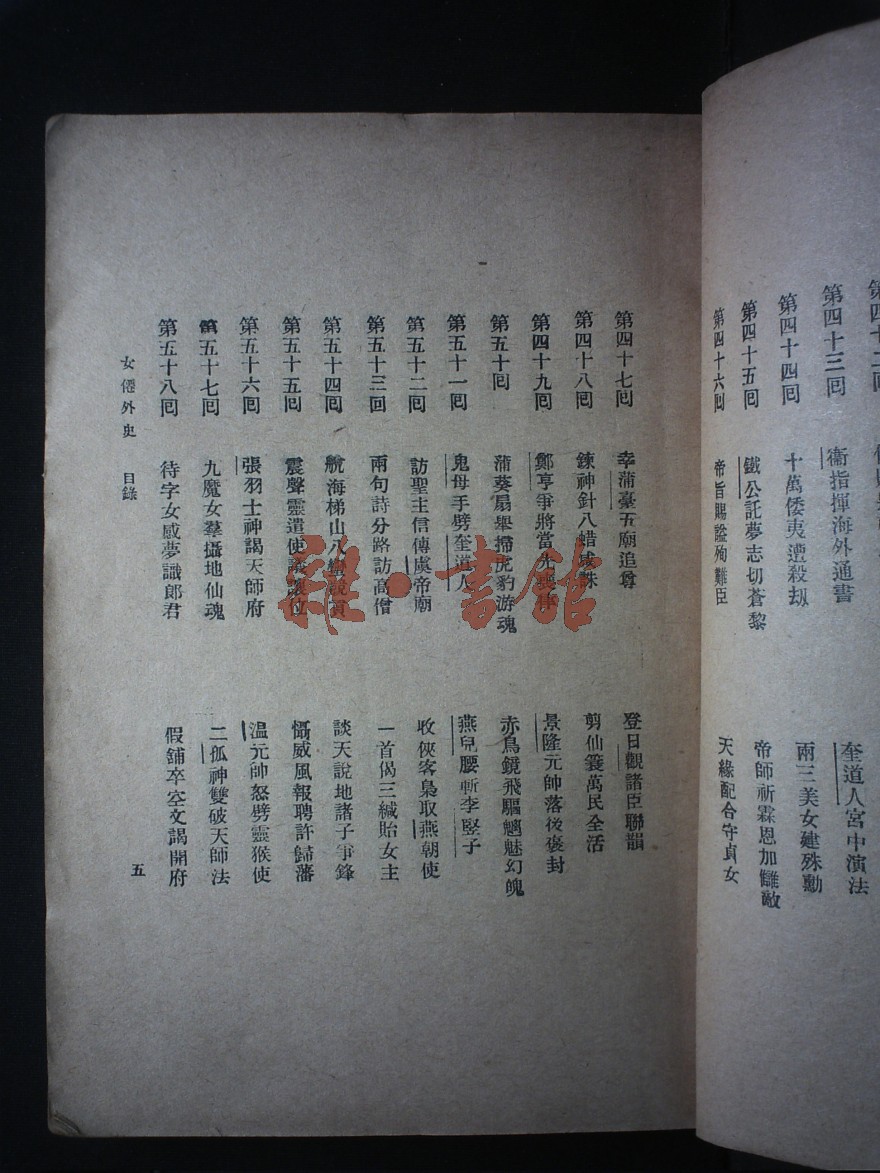 第四十三囘 衞指揮海外通書 奎道人宮中演法
第四十四囘 十萬倭夷遭殺刼 兩三美女建殊勳
第四十五囘 鐵公託夢志切蒼黎 帝師祈霖恩加讎敵
第四十六囘 帝旨賜謚殉難臣 天緣配合守貞女
第四十七囘 幸蒲臺五廟追尊 登日觀諸臣聯韻
第四十八囘 鍊神針八蜡咸誅 剪仙簑萬民全活
第四十九囘 鄭亨爭將當先喪律 景隆元帥落後褒封
第五十囘 蒲葵扇舉掃虎豹游魂 赤鳥鏡飛驅魑魅幻魄
第五十一囘 鬼母手劈奎道人 燕兒腰斬李竪子
第五十二囘 訪聖主信傳虞帝廟 收俠客梟取燕朝使
第五十三回 兩句詩分路訪高僧 一首偈三緘貽女主
第五十四囘 航海梯山八蠻競貢 談天說地諸子爭鋒
第五十五囘 震聲靈遣使議讓位 慴威風報聘許歸藩
第五十六囘 張羽士神謁天師府 溫元帥怒劈靈猴使
第五十七囘 九魔女羣攝地仙魂 二孤神雙破天師法
第五十八囘 待字女感夢識郎君 假舖卒空文謁開府
女僊外史 目錄 五
雜·書館